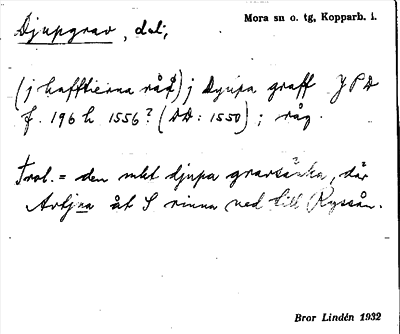 Djupgrav, dal;
Mora sn o. tg, Kopparb. l.
(j haffthierna råå) j Dyupa graff JPD
f. 196 h 1556? (DD: 1550); råg.
Trol. = den mkt djupa gravsänka, där
åt S rinna ned till Ryssån.
Bror Lindén 1932